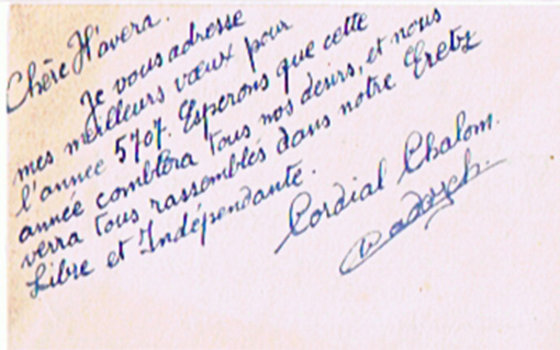 Chère H'avera.
Je vous adresse
mes meilleurs vœux pour
l'année 5707. Esperons que cette
année comblera tous nos désirs, et nous
verra tous rassemblés dans notre Eretz
Libre et Indépendante.
Cordial Chalom.